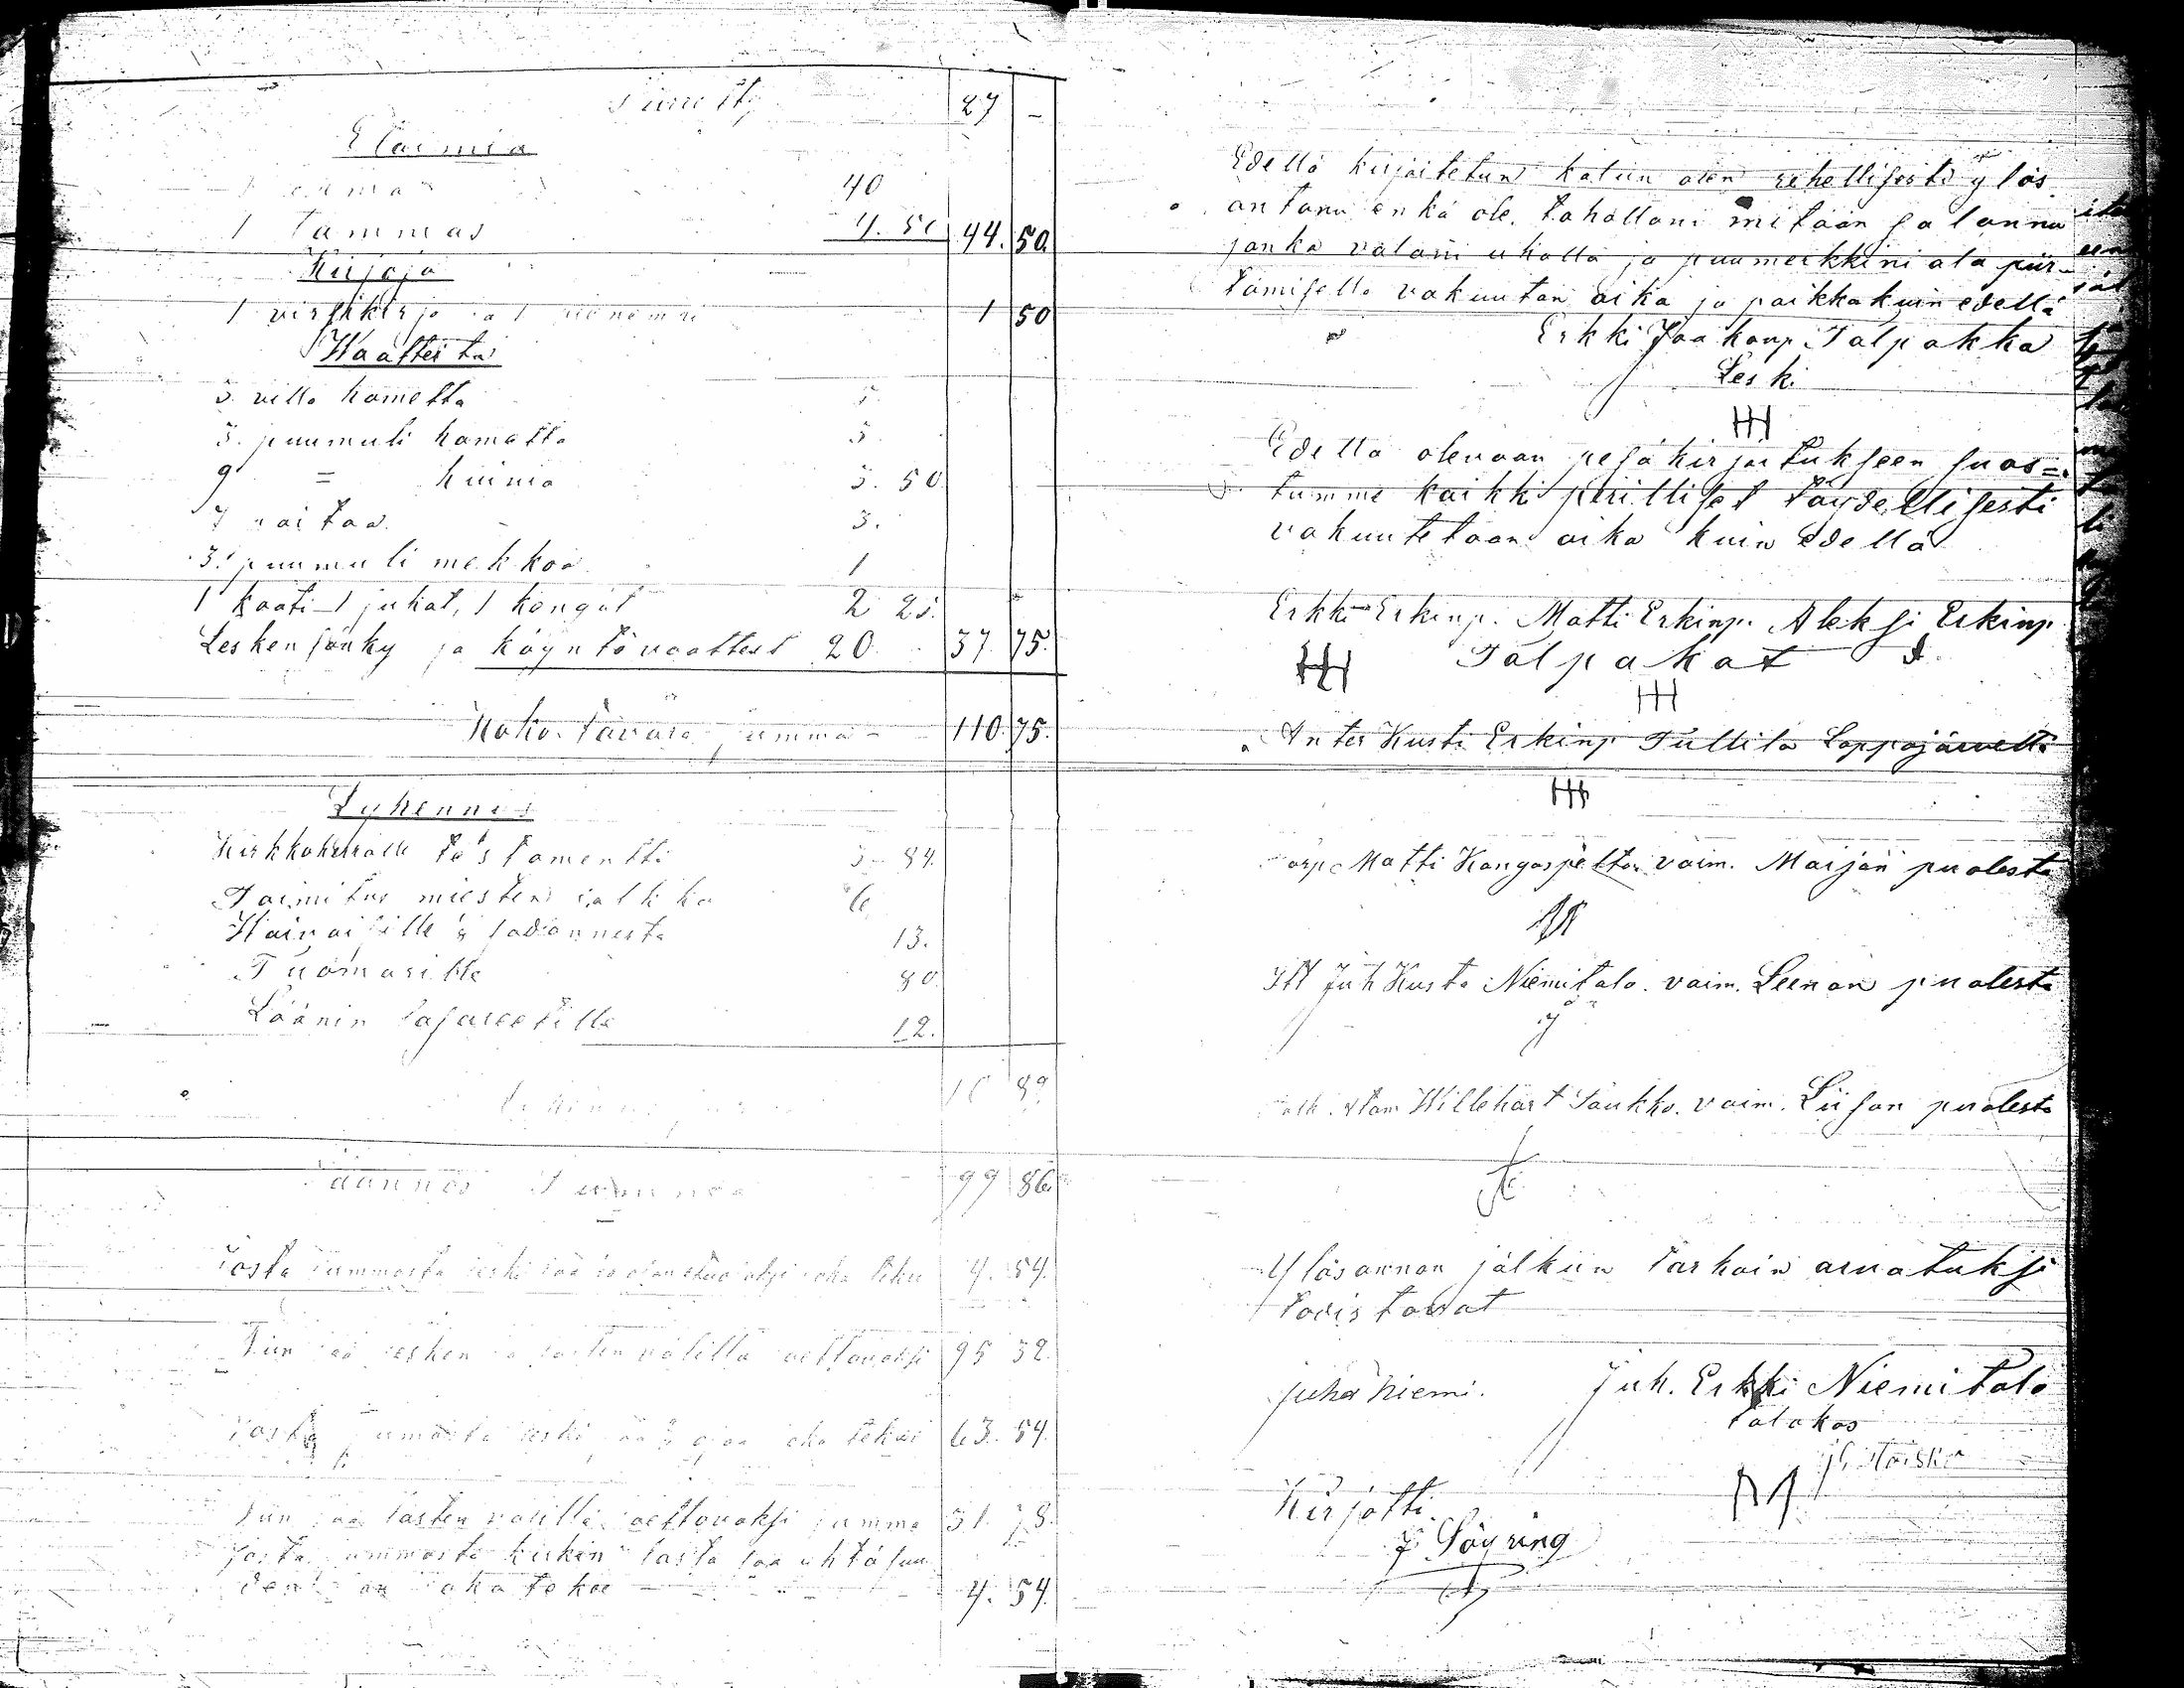 Siirretty 27 -
Eläimiä
40
1 lammas 4. 50 44. 50.
Kirjoja
1 virsikirja ja 1 1 50
Waatteita
3 villa hametta
3. puumuli hametta 3.
9 = huivia 3. 50
7 paitaa 3.
3. puumuli mekkoa 1
1 kaati 1 jukat, 1 kengät 2 25.
Lesken sänky ja käyntö vaatteet 20 37. 75.
Koko tavara summa 110. 75.
Lyhennys
Kirkkoherralle testamentti 3 - 84.
Toimitus miesten palkka 6
Waivaisille 1/8 sadannesta 13.
Tuomarille 80.
Läänin lasareetille 12.
10 89
Säännös Summa 99 86.
Josta summasta leski saa joka tekee 4. 54.
Niin jää lesken ja lasten välillä jaettavaksi 95 32.
Josta summasta leski saa joka tekee 63. 54.
Niin jää lasten välillä jaettavaksi summa 31. 78.
Josta summasta kukin lasta saa yhtäsuu
den osan joka tekee 4. 54.
Edellä kirjoitetun kalun olen rehellisesti ylös
antanu enkä ole tahallani mitään salannu
jonka valani uhalla ja puumerkkini ala piir-
tämisellä vakuutan aika ja paikka kuin edellä
Erkki Jaakonp. Talpakka
Leski
Edellä olevaan pesäkirjoitukseen suos=
tumme kaikki perilliset täydellisesti
vakuutetaan aika kuin edellä
Erkki Erkinp. Matti Erkinp. Aleksi Erkinp
Talpakat
Anter Kusti Erkinp Tullila Lappajärvellä
Torp. Matti Kangaspelton vaim. Maijan puolesta
Itl Juh Kusta Niemitalo. vaim. Leenan puolesta
Willehart Saukko. vaim. Liisan puolesta
Ylösannon jälkeen tarkoin arvatuksi
todistavat
Juha Niemi. Juh. Erkki Niemitalo
talokas
Kirjotti.
J Löyring